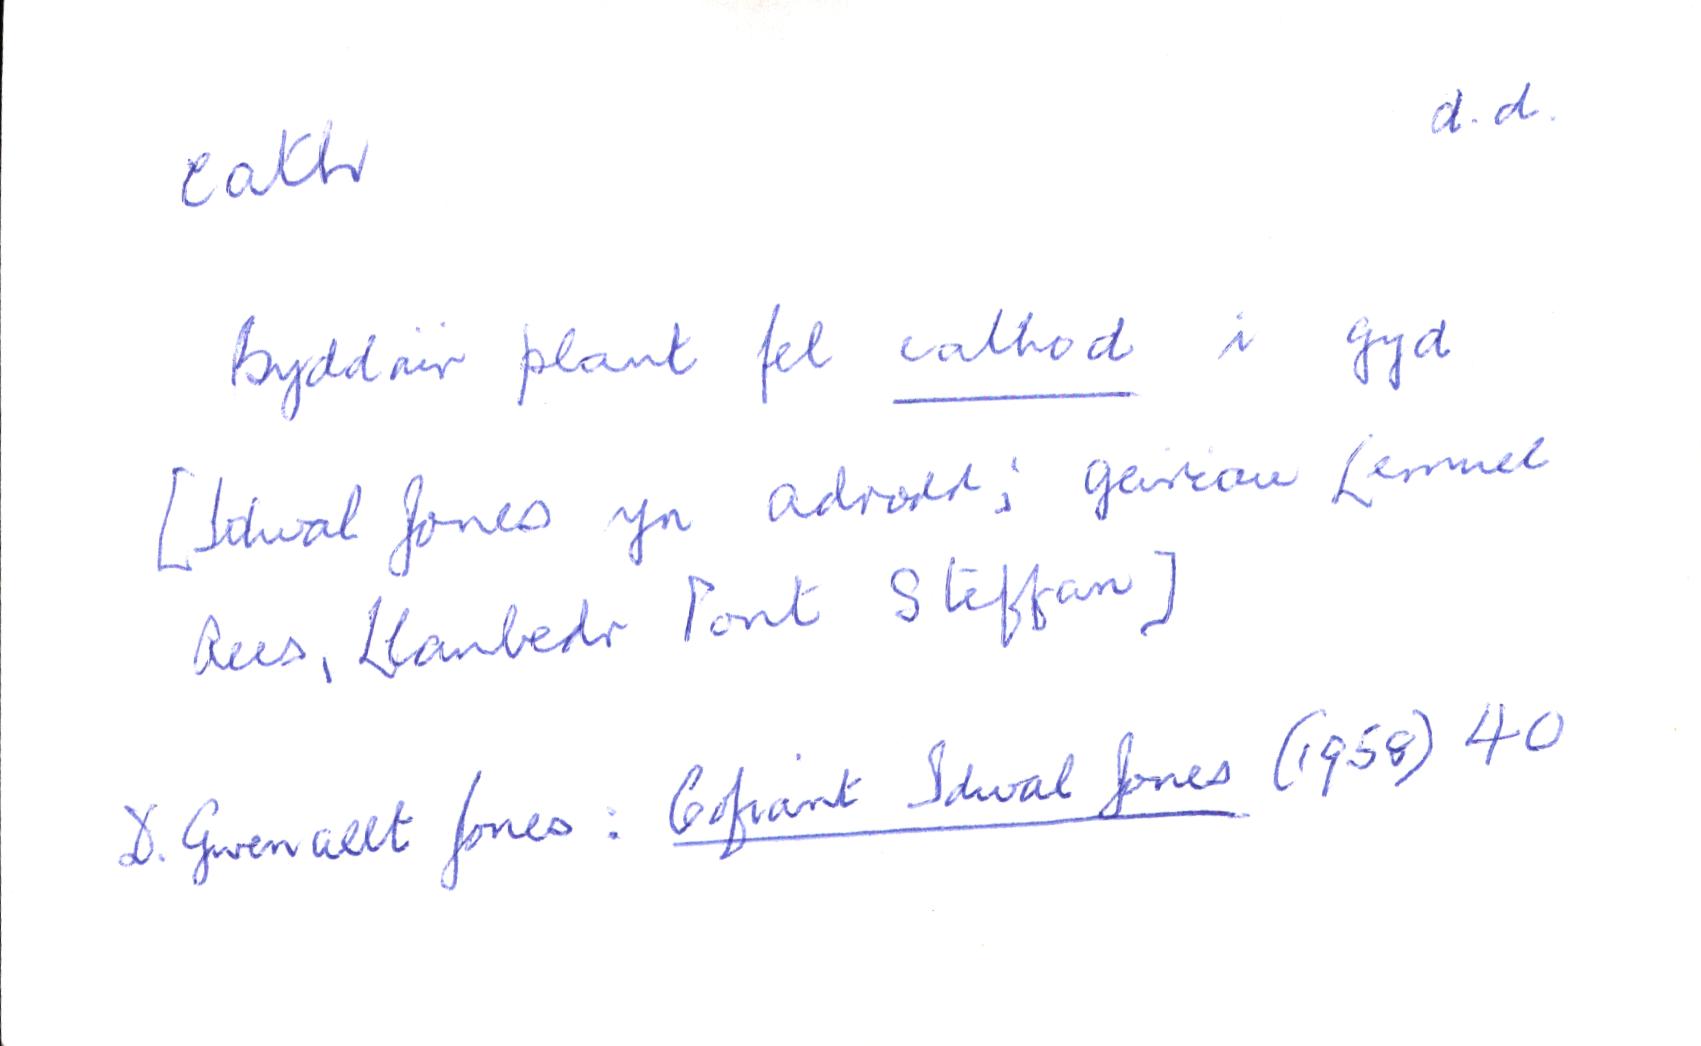 d.d.
cath
Byddai'r plant fel cathod i gyd
[Idwal Jones yn adrodd; geiriau Lemuel
Rees, Llanbedr Pont Steffan]
D. Gwenallt Jones: Cofiant Idwal Jones (1958) 40